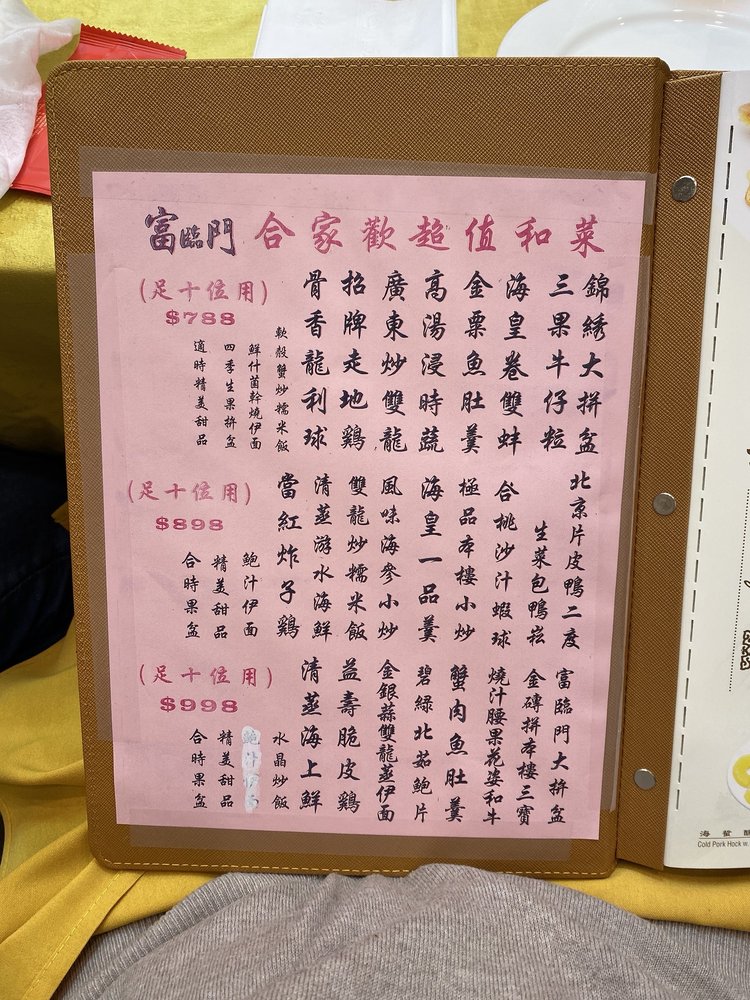 富臨門 合家歡超值和菜
錦綉大拼盆
三果牛仔粒
海皇卷雙蚌
金粟魚肚羹
高湯浸時蔬
廣東炒雙龍
招牌走地鷄
骨香龍利球
軟殼蟹炒糯米飯
鮮什菌幹燒伊面
四季生果拚盆
適時精美甜品
(足十位用)
$788
北京片皮鴨二度
生菜包鴨崧
合桃沙汁蝦球
極品本樓小炒
海皇一品羹
風味海參小炒
雙龍炒糯米飯
清蒸游水海鮮
當紅炸子鷄
鮑汁伊面
精美甜品
合時果盆
(足十位用)
$898
富臨門大拚盆
金磚拼本樓三寶
燒汁腰果花姿和牛
蟹肉魚肚羹
碧綠北茹鮑片
金銀蒜雙龍蒸伊面
益壽脆皮鷄
清蒸海上鮮
水晶炒飯
精美甜品
合時果盆
(足十位用)
$998
Cold Pork Hock w.